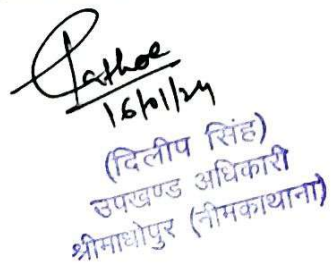 Rathoe
16/01/24
(दिलीप सिंह)
उपखण्ड अधिकारी
श्रीमाधोपुर (नीमकाथाना)